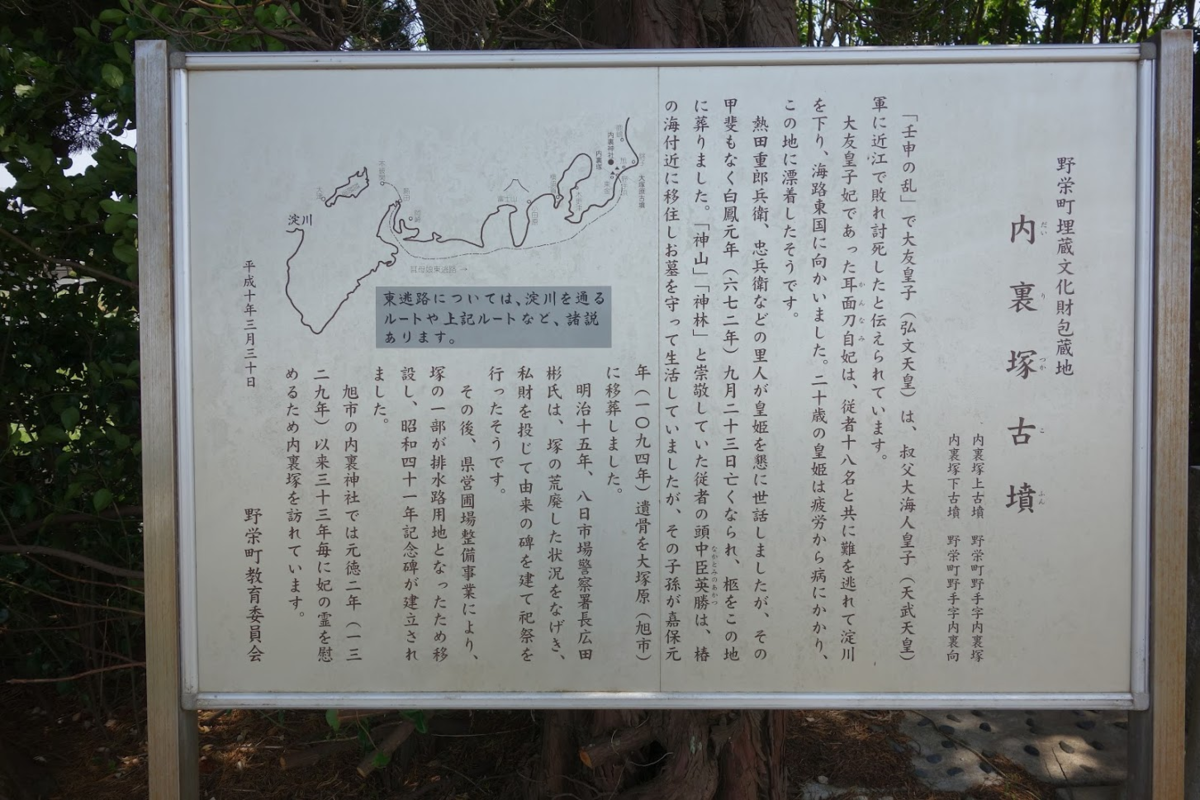 野栄町埋蔵文化財包蔵地
内裏塚古墳
だいりつかこふん
内裏塚上古墳 野栄町野手字内裏塚
内裏塚下古墳 野栄町野手字内裏向
「壬申の乱」で大友皇子（弘文天皇）は、叔父大海人皇子（天武天皇）
軍に近江で敗れ討死したと伝えられています。
大友皇子妃であった耳面刀自妃は、従者十八名と共に難を逃れて淀川
かんなみ
を下り、海路東国に向かいました。二十歳の皇姫は疲労から病にかかり、
この地に漂着したそうです。
熱田重郎兵衛、忠兵衛などの里人が皇姫を懇に世話しましたが、その
甲斐もなく白鳳元年（六七二年）九月二十三日亡くなられ、柩をこの地
に葬りました。「神山」「神林」と崇敬していた従者の頭中臣英勝は、椿
なかとみのあかつ
の海付近に移住しお墓を守って生活していましたが、その子孫が嘉保元
年（一〇九四年）遺骨を大塚原（旭市）
に移葬しました。
明治十五年、八日市場警察署長広田
彬氏は、塚の荒廃した状況をなげき、
私財を投じて由来の碑を建て祀祭を
行ったそうです。
その後、県営圃場整備事業により、
塚の一部が排水路用地となったため移
設し、昭和四十一年記念碑が建立され
ました。
旭市の内裏神社では元徳二年（一三
二九年）以来三十三年毎に妃の霊を慰
めるため内裏塚を訪れています。
内裏神社
内裏塚
大塚原古墳
富士山
淀川
東逃路については、淀川を通る
ルートや上記ルートなど、諸説
あります。
平成十年三月三十日
野栄町教育委員会